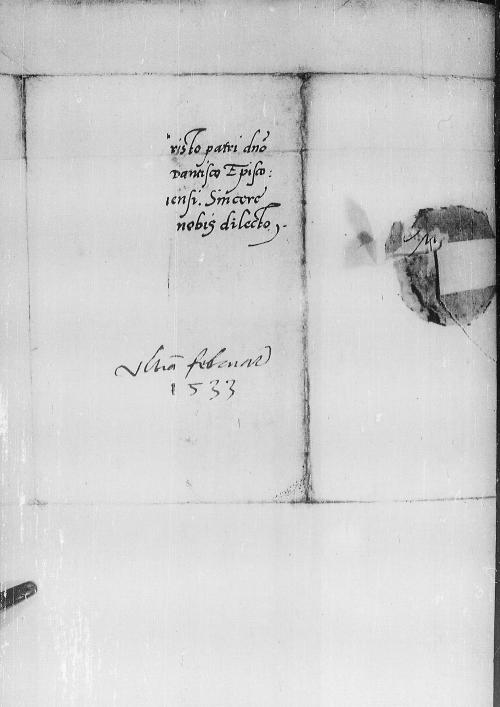 risto patri dno
Dantisco Episco:
iensi. Sincere
nobis dilecto
ultia februarii
1533